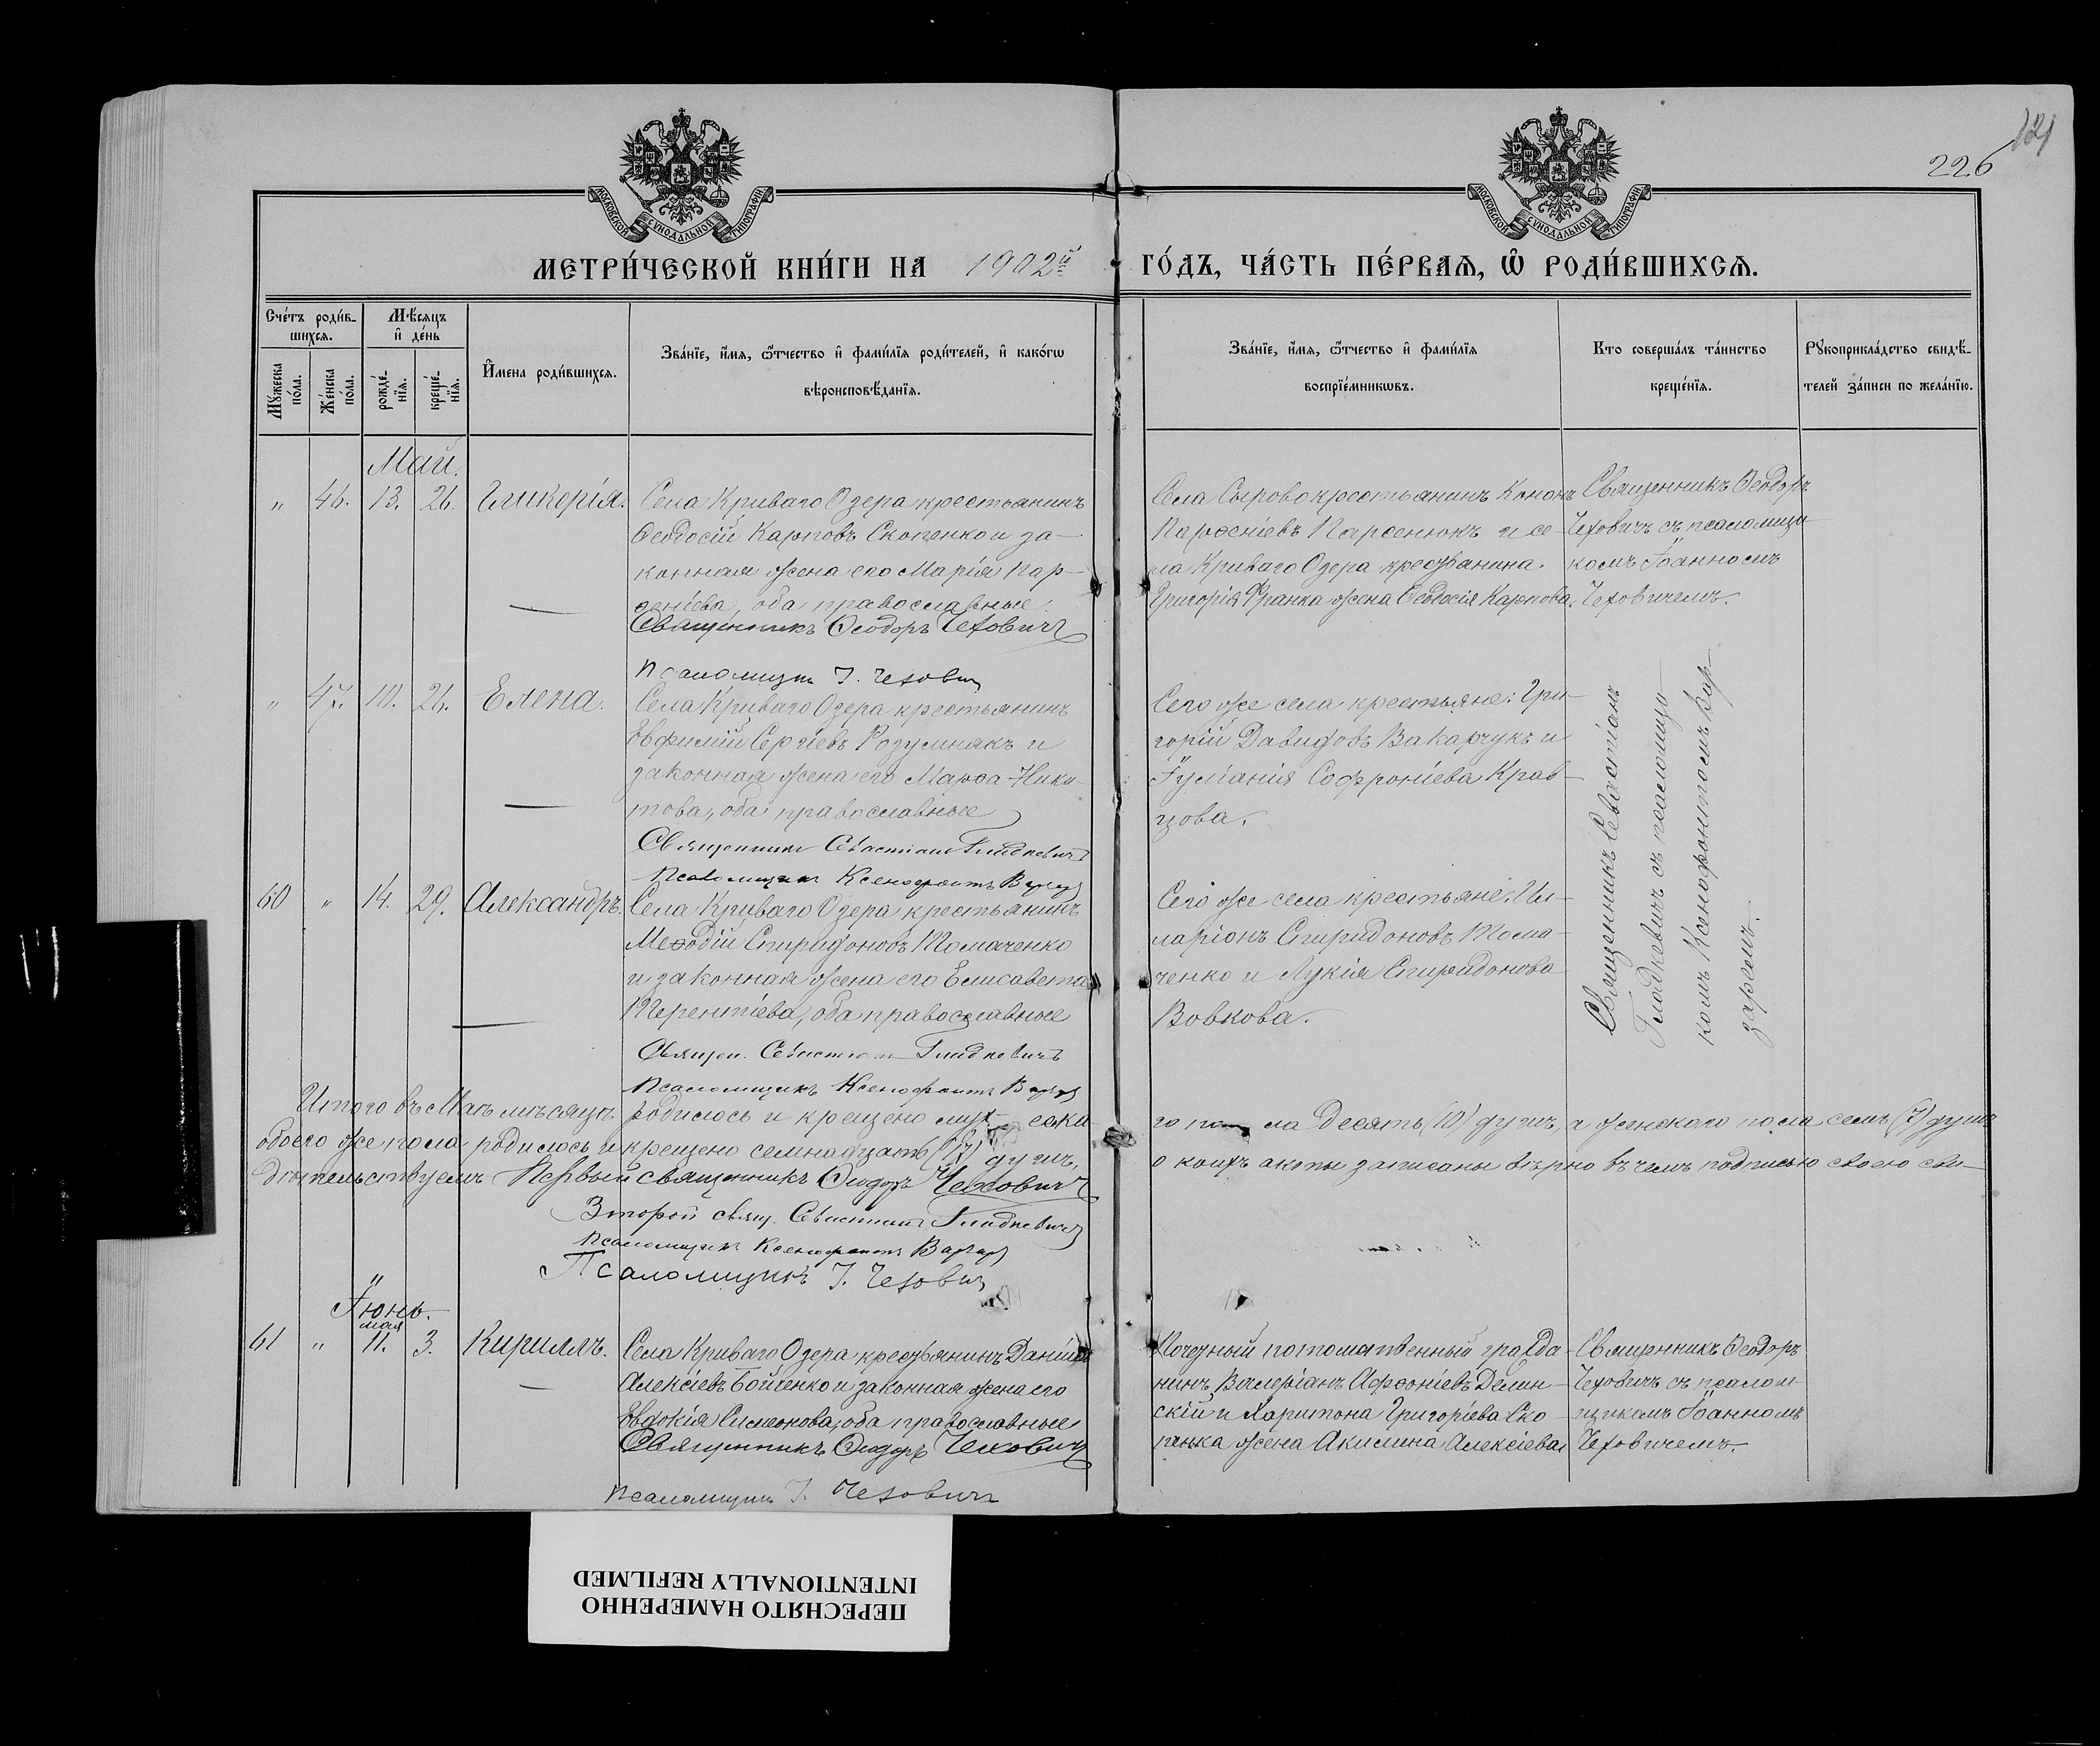 121
226
МОСКОВСКОЙ СУНОДАЛЬНОЙ ТИПОГРАФІИ
МОСКОВСКОЙ СУНОДАЛЬНОЙ ТИПОГРАФІИ
МЕТРИ́ЧЕСКОЙ КНИ́ГИ НА 1902й ГО́ДЪ, ЧА́СТЬ ПЕ́РВАѦ, Ѡ҆ РОДИ́ВШИХСѦ.
Сче́тъ роди́в-
шихсѧ.
Мꙋ́жеска
по́ла.
Же́нска
по́ла.
Мѣ́сѧцъ
и҆ де́нь
рожде́-
нїѧ.
креще́-
нїѧ.
И҆мена роди́вшихсѧ.
Зва́нїе, и҆́мѧ, ѻ҆́тчество и҆ фами́лїѧ роди́телей, и҆ како́гѡ
вѣроисповѣ́данїѧ.
Зва́нїе, и҆́мѧ, ѻ҆́тчество и҆ фами́лїѧ
воспрїе́мникѡвъ.
Кто соверша́лъ та́инство
креще́нїѧ.
Рꙋкоприкла́дство свидѣ́-
телей за́писи по жела́нїю.
Май.
" 46. 13. 26. Гликерія.
Села Криваго Озера крестьянинъ
Ѳеодосій Карповъ Скопенко и за-
конная жена его Марія Пар-
ѳеніева, оба православные.
Священникъ Ѳеодоръ Чеховичъ
Псаломщик І. Чехович
Села Сырово крестьянинъ Кононъ
Парѳеніевъ Парсенюкъ и се-
ла Криваго Озера крестьянина
Григорія Франка жена Ѳеодосія Карпова.
Священникъ Ѳеодоръ
Чеховичъ съ псаломщи-
комъ Іоанномъ
Чеховичемъ.
" 47. 10. 26. Елена.
Села Криваго Озера крестьянинъ
Евфимій Сергіевъ Розумнякъ и
законная жена его Марѳа Ники-
това, оба православные
Священник Севастіан Гладкевичъ
Псаломщик Ксенофонтъ
Сего же села крестьяне: Гри-
горій Давидовъ Вакарчукъ и
Іуліанія Софроніева Крав-
цова.
Священникъ Севастіанъ
Гладкевичъ съ псаломщи-
комъ Ксенофонтомъ
60 " 14. 29. Александръ.
Села Криваго Озера крестьянинъ
Меѳодій Спиридоновъ Томаченко
и законная жена его Елисавета
Терентіева, оба православные
Священ. Севастіан Гладкевичъ
Псаломщикъ Ксенофонтъ
Сего же села крестьяне: Ил-
ларіонъ Спиридоновъ Тома-
ченко и Лукія Спиридонова
Вовкова.
Итого въ Маѣ мѣсяцѣ родилось и крещено мужеска-
го пола десять (10) душъ, а женскаго пола семь (7) душъ
обоего же пола родилось и крещено семнадцать (17) душъ,
о коихъ акты записаны вѣрно въ чемъ подписью своею сви-
дѣтельствуемъ Первый священникъ Ѳеодоръ Чеховичъ
Второй свящ. Севастіан Гладкевичъ
Псаломщикъ Ксенофонтъ
Псаломщикъ І. Чехович
Іюнь.
61 " мая 11. 3. Кириллъ.
Села Криваго Озера крестьянинъ Даніилъ
Алексіевъ Бойченко и законная жена его
Евдокія Симеонова, оба православные
Священникъ Ѳеодоръ Чеховичъ
Псаломщик І. Чеховичъ
Почетный потомственный гражда-
нинъ Валеріанъ Афѳоніевъ Делин-
скій и Харитона Григоріева Ско-
пенка жена Акилина Алексіева
Священникъ Ѳеодоръ
Чеховичъ съ псалом-
щикомъ Іоанномъ
Чеховичемъ.
ПЕРЕСНЯТО НАМЕРЕННО
INTENTIONALLY REFILMED